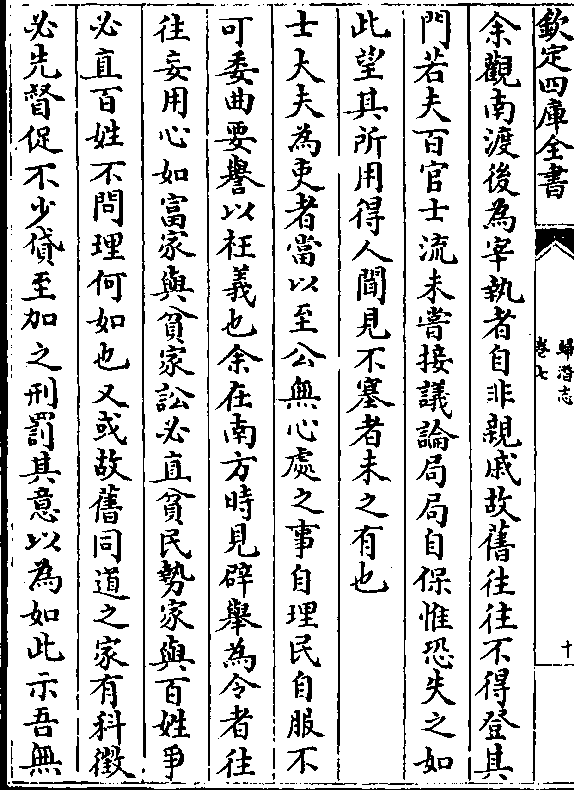 欽定四庫全書
歸潛志
卷七
十
余觀南渡後為宰執者自非親戚故舊往往不得登其
門若夫百官士流未嘗接議論局局自保惟恐失之如
此望其所用得人聞見不塞者未之有也
士大夫為吏者當以至公無心處之事自理民自服不
可委曲要譽以枉義也余在南方時見辟舉為令者往
往妄用心如富家與貧家訟必直貧民勢家與百姓爭
必直百姓不問理何如也又或故舊同道之家有科徵
必先督促不少貸至加之刑罰其意以為如此示吾無